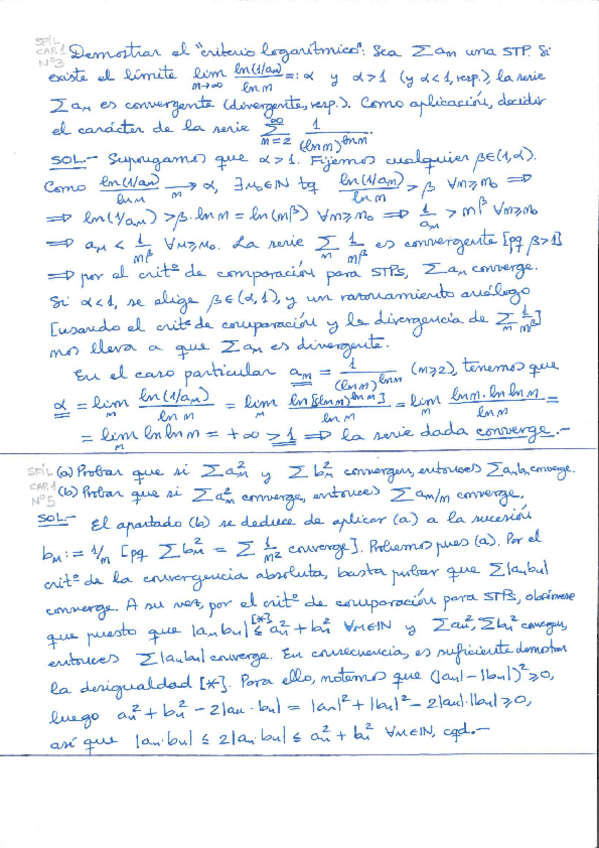 SPIL CAP.1 Nº3
Demostrar el "criterio logarítmico": Sea Σ aₙ una STP. Si
existe el límite lim_{n→∞} ln(1/aₙ)/ln n =: α y α>1 (y α<1, resp.), la serie
Σ aₙ es convergente (divergente, resp.). Como aplicación, decidir
el carácter de la serie Σ_{n=2}^{∞} 1/(ln n)^{ln n}.
SOL.- Supongamos que α>1. Fijemos cualquier β∈(1,α).
Como ln(1/aₙ)/ln n →ₙ α, ∃n₀∈ℕ tq ln(1/aₙ)/ln n > β ∀n≥n₀ ⟹
⟹ ln(1/aₙ) > β·ln n = ln(n^β) ∀n≥n₀ ⟹ 1/aₙ > n^β ∀n≥n₀
⟹ aₙ < 1/n^β ∀n≥n₀. La serie Σₙ 1/n^β es convergente [pq β>1]
⟹ por el critº de comparación para STPs, Σ aₙ converge.
Si α<1, se elige β∈(α,1), y un razonamiento análogo
[usando el critº de comparación y la divergencia de Σₙ 1/n^β]
nos lleva a que Σ aₙ es divergente.
En el caso particular aₙ = 1/(ln n)^{ln n} (n≥2), tenemos que
α = limₙ ln(1/aₙ)/ln n = limₙ ln[(ln n)^{ln n}]/ln n = limₙ ln n · ln ln n/ln n =
= limₙ ln ln n = +∞ > 1 ⟹ la serie dada converge.-
SPIL CAP.1 Nº5
(a) Probar que si Σ aₙ² y Σ bₙ² convergen, entonces Σ aₙbₙ converge.
(b) Probar que si Σ aₙ² converge, entonces Σ aₙ/n converge.
SOL.- El apartado (b) se deduce de aplicar (a) a la sucesión
bₙ := 1/n [pq Σ bₙ² = Σ 1/n² converge]. Probemos pues (a). Por el
critº de la convergencia absoluta, basta probar que Σ|aₙbₙ|
converge. A su vez, por el critº de comparación para STPs, obsérvese
que puesto que |aₙbₙ| ≤[*] aₙ²+bₙ² ∀n∈ℕ y Σaₙ², Σbₙ² convergen,
entonces Σ|aₙbₙ| converge. En consecuencia, es suficiente demostrar
la desigualdad [*]. Para ello, notemos que (|aₙ|-|bₙ|)² ≥ 0,
luego aₙ²+bₙ²-2|aₙ·bₙ| = |aₙ|²+|bₙ|²-2|aₙ|·|bₙ| ≥ 0,
así que |aₙ·bₙ| ≤ 2|aₙ·bₙ| ≤ aₙ²+bₙ² ∀n∈ℕ, cqd.-